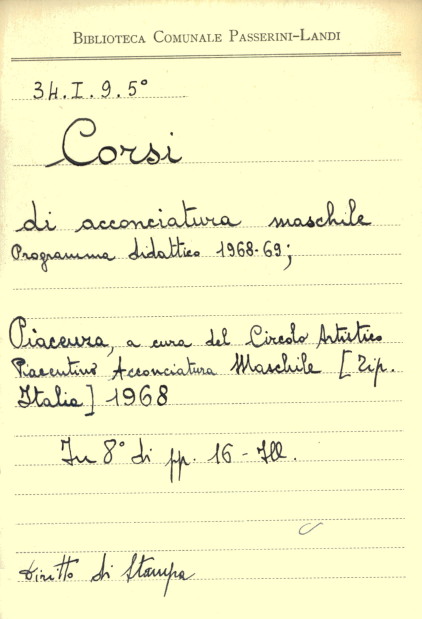 BIBLIOTECA COMUNALE PASSERINI-LANDI
34.I.9.5°
Corsi
di acconciatura maschile
Programma didattico 1968-69;
Piacenza, a cura del Circolo Artistico
Piacentino Acconciatura Maschile [Tip.
Italia] 1968
In 8° di pp. 16 - Ill.
Diritto di Stampa